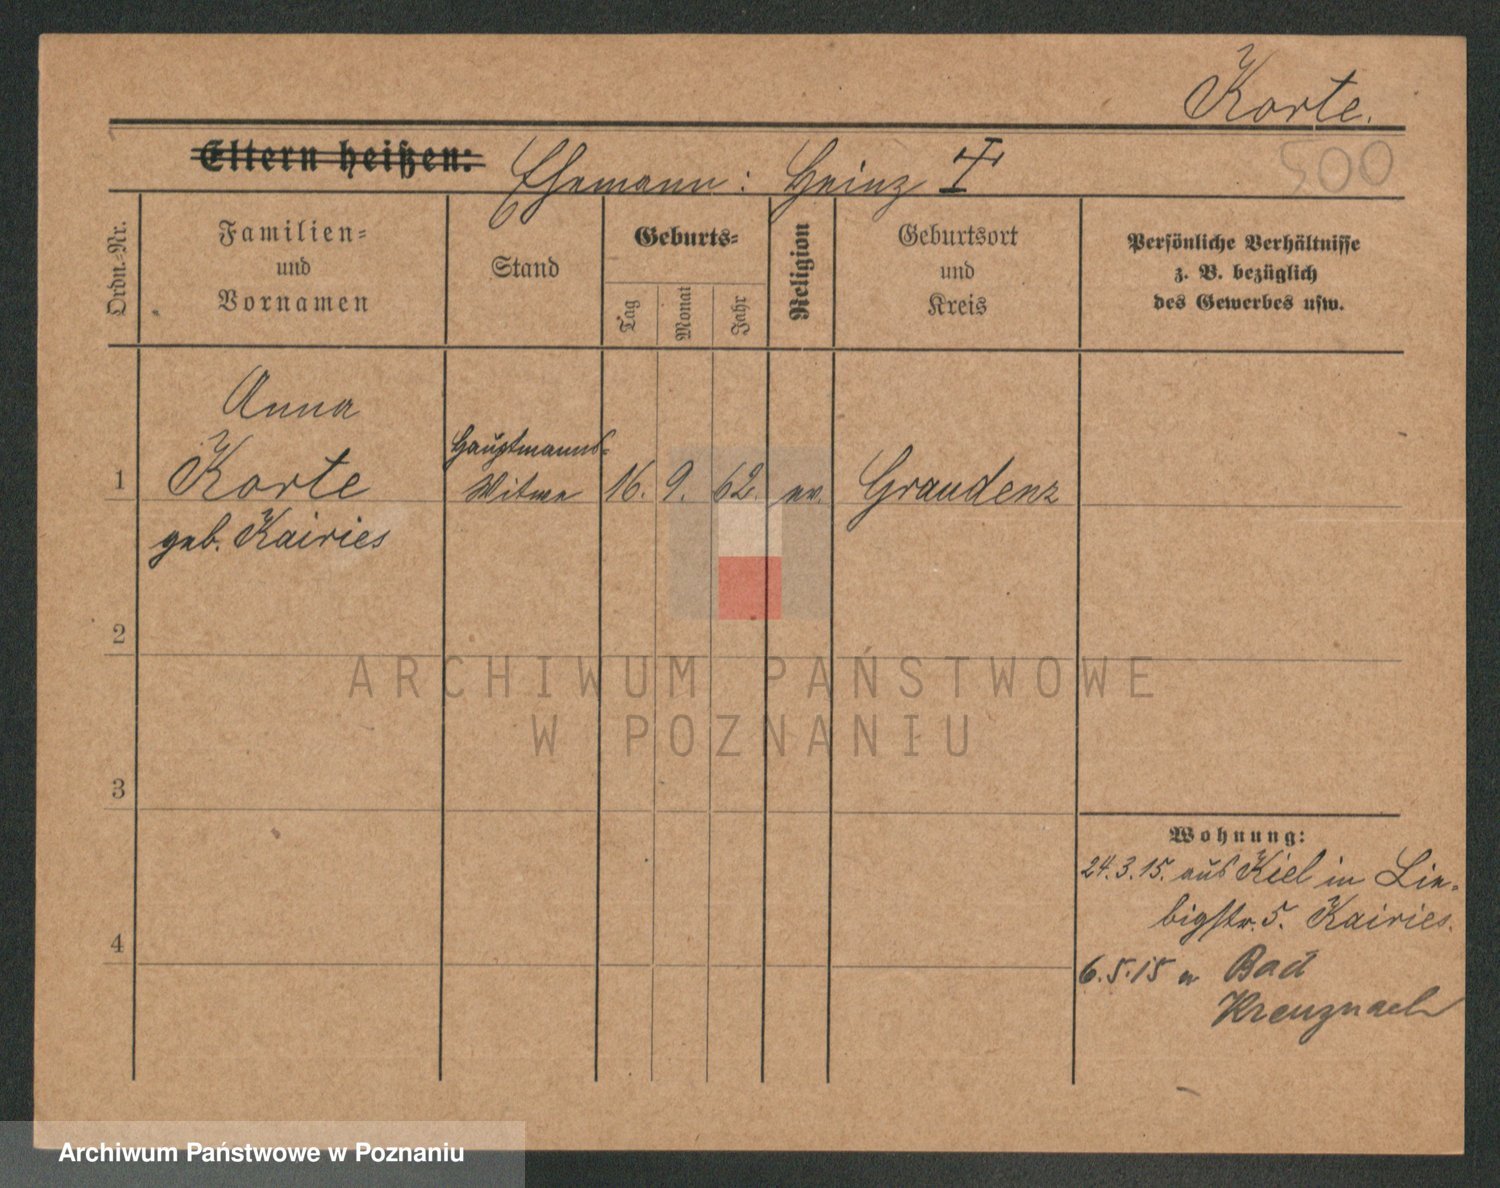 Korte.
500
Eltern heißen: Ehemann: Heinz †
Ordn.-Nr.
Familien-
und
Vornamen
Stand
Geburts-
Tag
Monat
Jahr
Religion
Geburtsort
und
Kreis
Persönliche Verhältnisse
z. B. bezüglich
des Gewerbes usw.
Anna
Hauptmanns-
1 Korte Witwe 16. 9. 62. ev. Graudenz
geb. Kairies
2
ARCHIWUM PAŃSTWOWE
W POZNANIU
3
Wohnung:
24.3.15. aus Kiel in Lie-
bigstr. 5. Kairies.
4
6.5.15 n Bad
Kreuznach
Archiwum Państwowe w Poznaniu